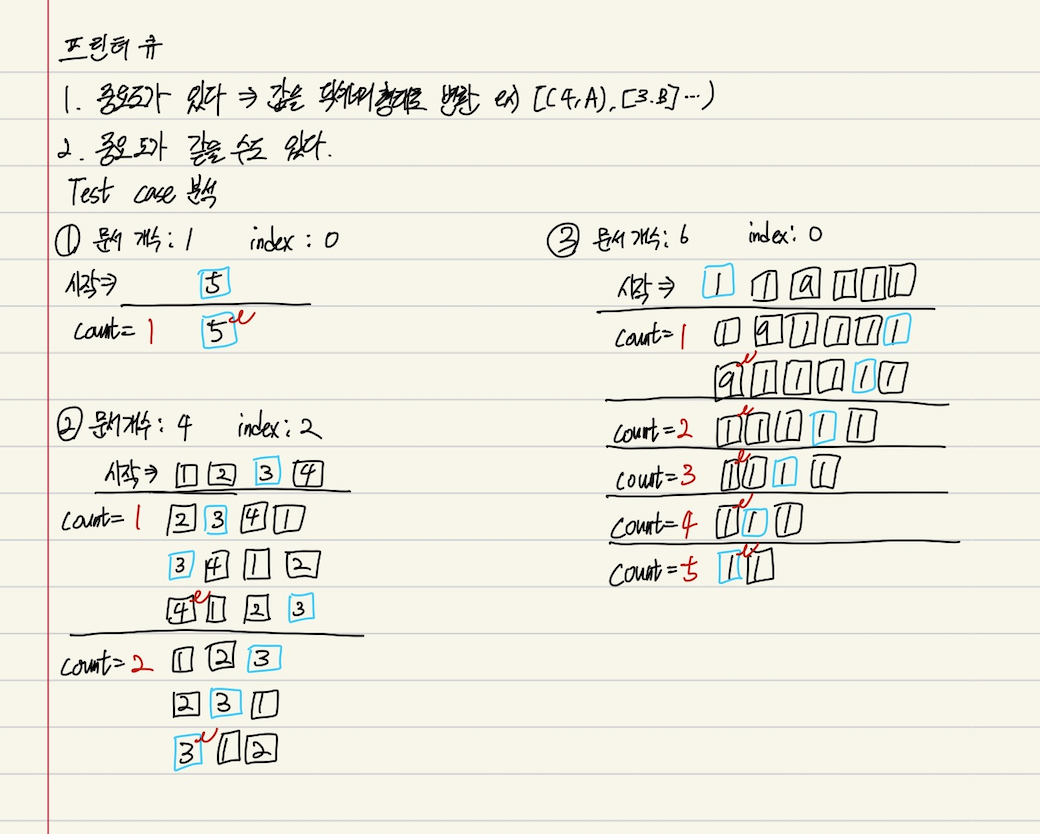 프린터 큐
1. 중요도가 있다 ⇒ 값을 딕셔너리형태로 변환 ex) [(4,A),[3.B]…)
2. 중요도가 같을 수도 있다.
Test case 분석
① 문서 개수: 1 index : 0
시작⇒ 5
count= 1 5
② 문서개수: 4 index: 2
시작⇒ 1 2 3 4
count= 1 2 3 4 1
3 4 1 2
4 1 2 3
count= 2 1 2 3
2 3 1
3 1 2
③ 문서 개수: 6 index: 0
시작 ⇒ 1 1 9 1 1 1
count= 1 1 9 1 1 1 1
9 1 1 1 1 1
count= 2 1 1 1 1 1
count= 3 1 1 1 1
count= 4 1 1 1
count= 5 1 1